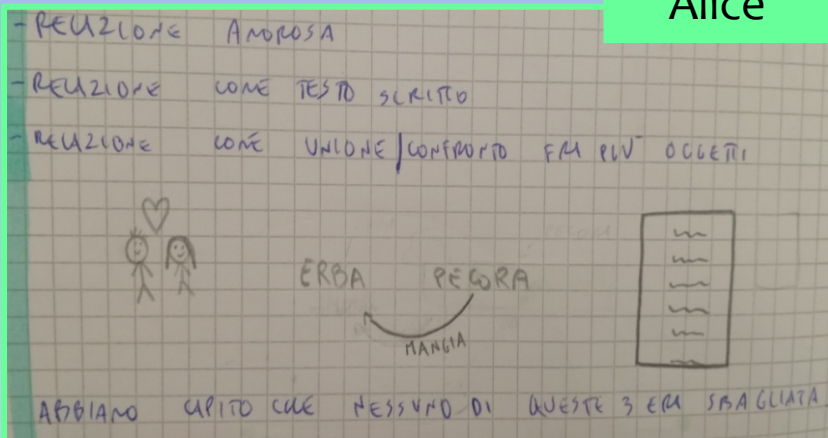 Alice
- RELAZIONE AMOROSA
- RELAZIONE COME TESTO SCRITTO
- RELAZIONE COME UNIONE/CONFRONTO FRA PIÙ OGGETTI
ERBA PECORA
MANGIA
ABBIAMO CAPITO CHE NESSUNO DI QUESTE 3 ERA SBAGLIATA